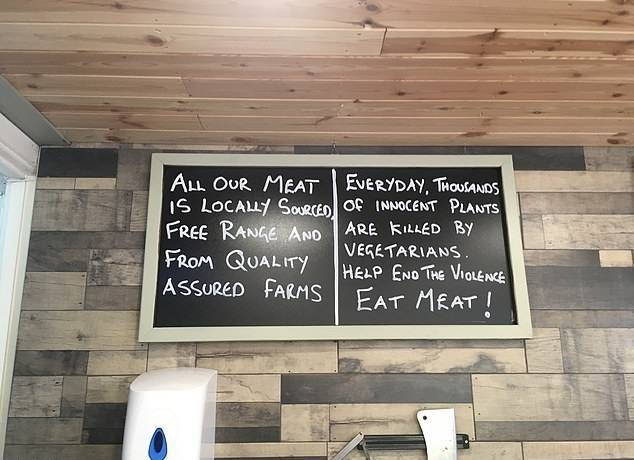 ALL OUR MEAT
IS LOCALLY SOURCED,
FREE RANGE AND
FROM QUALITY
ASSURED FARMS
EVERYDAY, THOUSANDS
OF INNOCENT PLANTS
ARE KILLED BY
VEGETARIANS.
HELP END THE VIOLENCE
EAT MEAT!